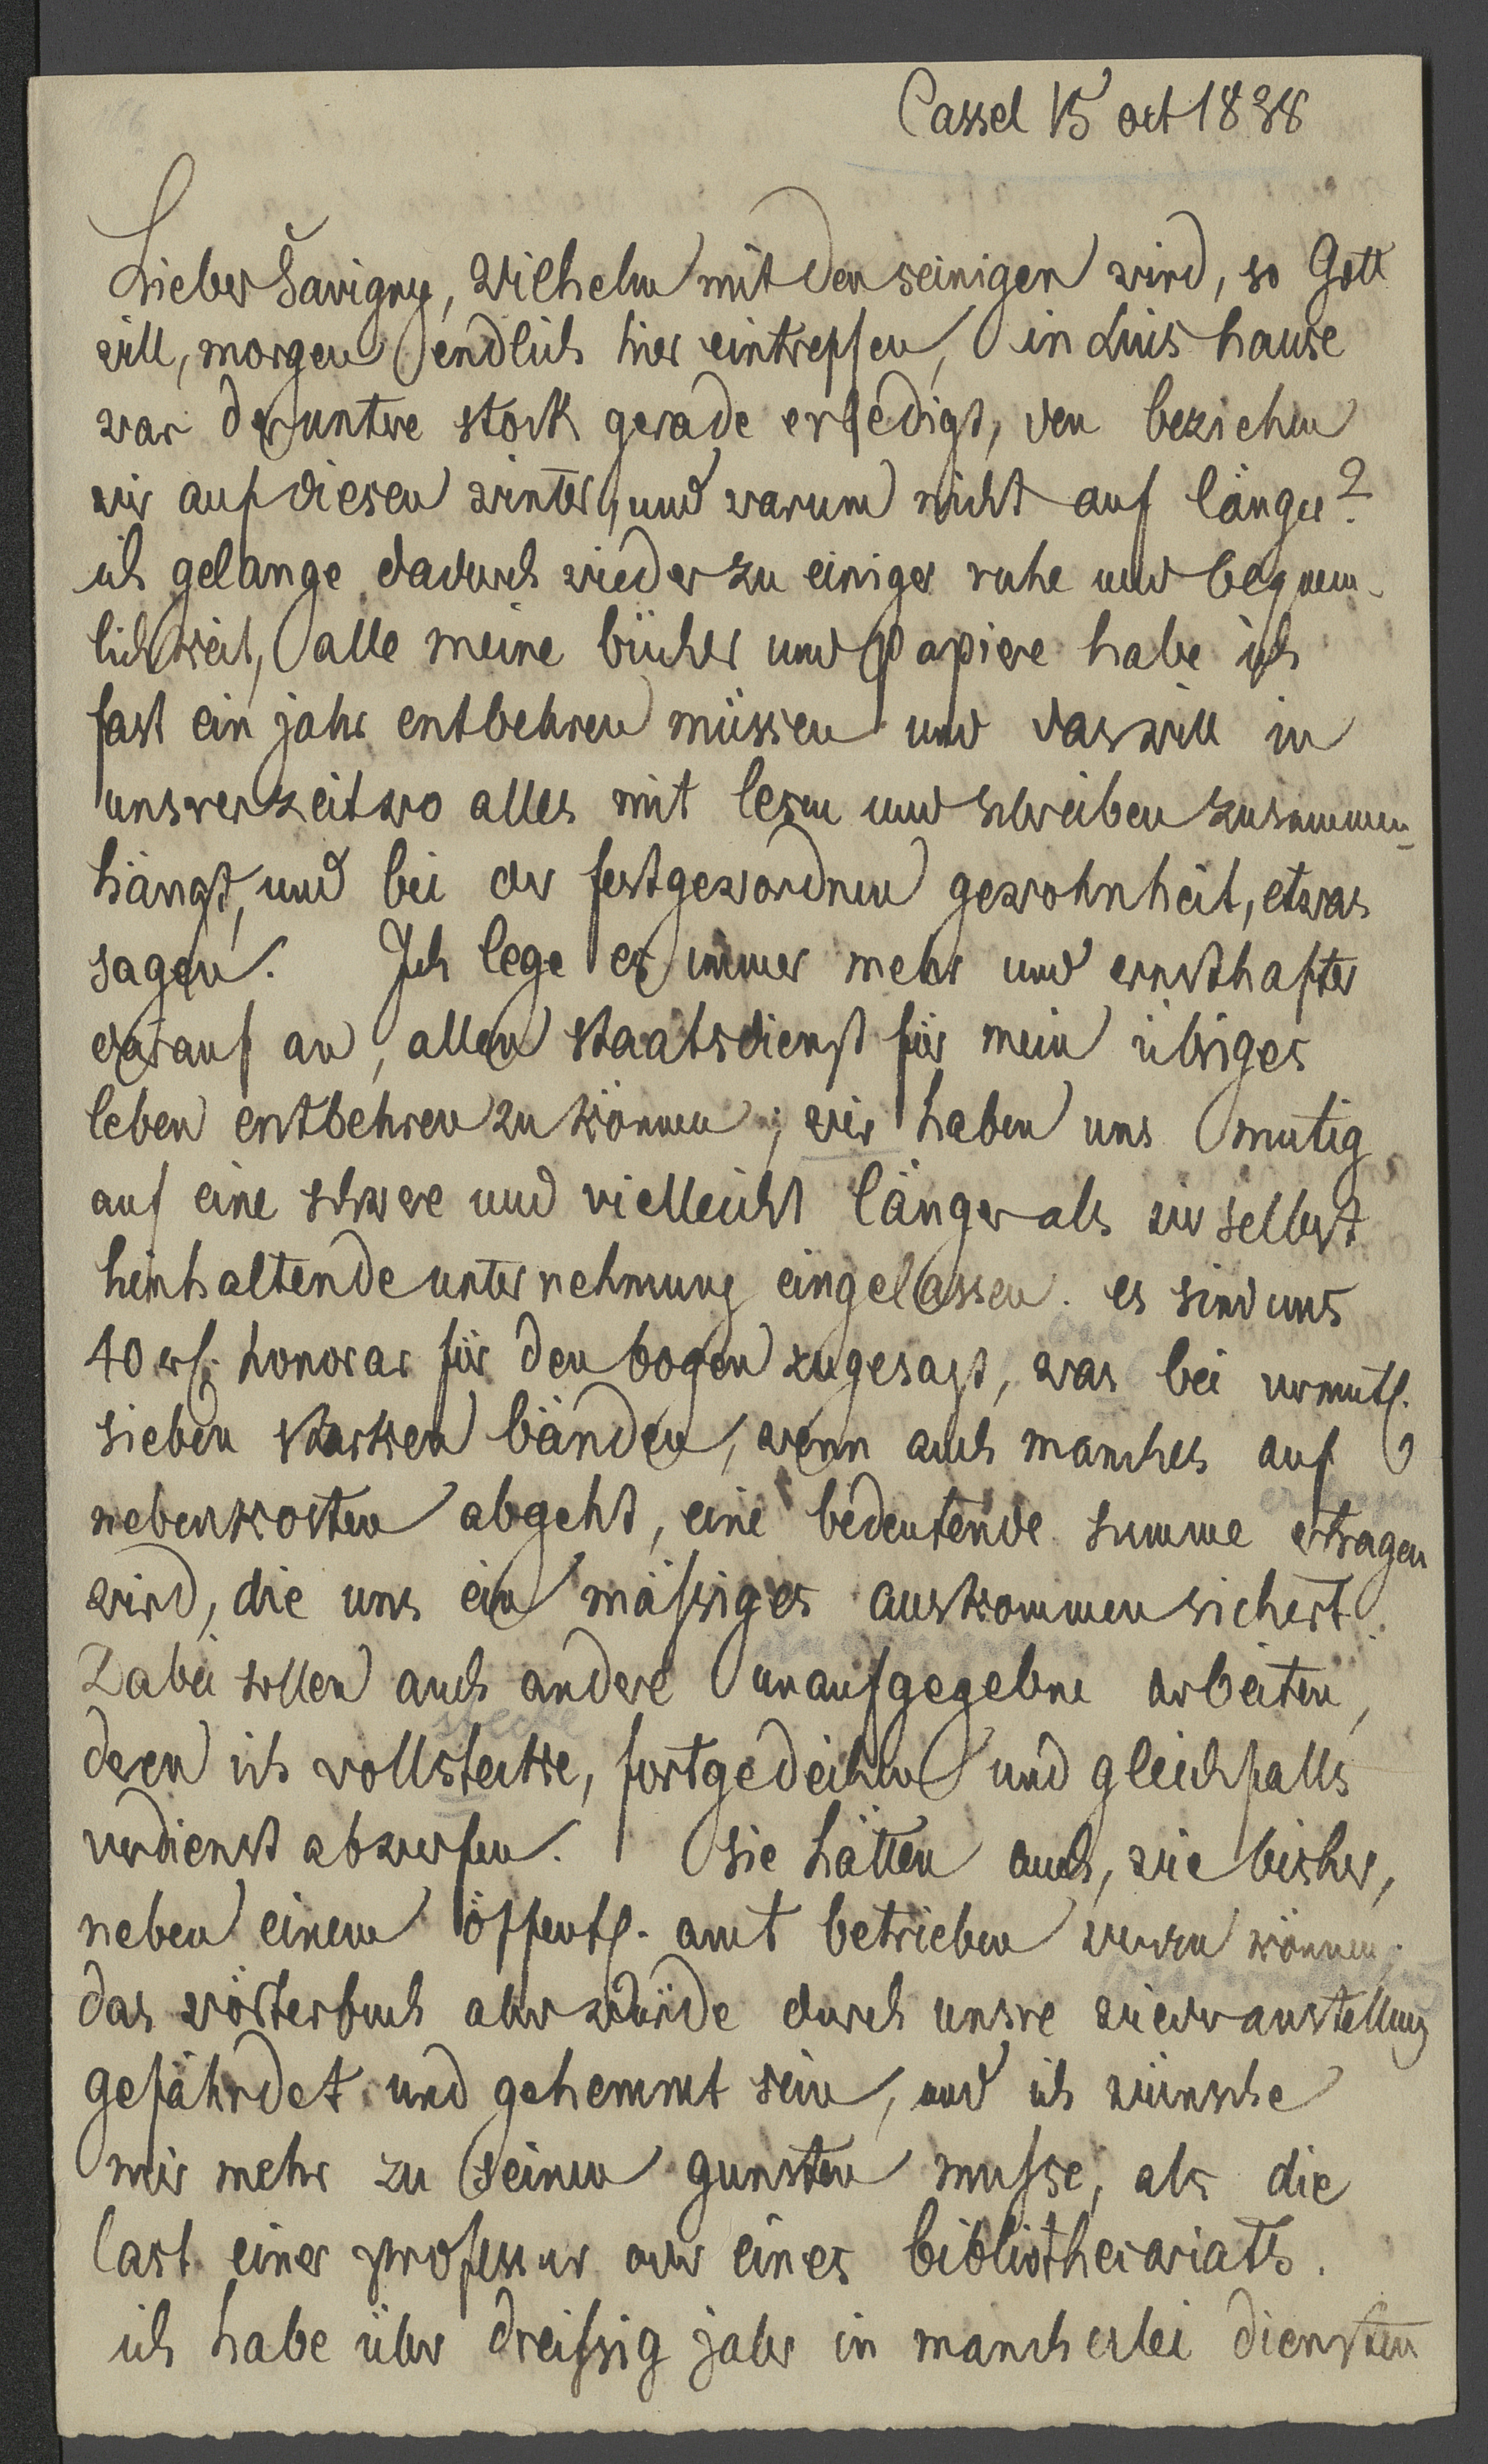 Cassel 15 oct 1838
Lieber Savigny, Wilhelm mit den seinigen wird, so Gott
will, morgen endlich hier eintreffen, in Luis hause
war der untere stock gerade erledigt, den beziehen
wir auf diesen winter, und warum nicht auf länger?
ich gelange dadurch wieder zu einiger ruhe und bequem-
lichkeit, alle meine bücher und papiere habe ich
fast ein jahr entbehren müssen und das will in
unsrer zeit wo alles mit lesen und schreiben zusammen-
hängt, und bei der festgewordnen gewohnheit, etwas
sagen. Ich lege es immer mehr und ernsthafter
darauf an, allen staatsdienst für mein übriges
leben entbehren zu können; wir haben uns mutig
auf eine schwere und vielleicht länger als wir selbst
hinhaltende unternehmung eingelassen. es sind uns
40 rf. honorar für den bogen zugesagt, was bei vermutl.
sieben starken bänden, wenn auch manches auf
nebenkosten abgeht, eine bedeutende summe ertragen
ertragen
wird, die uns ein mäßiges auskommen sichert.
Dabei sollen auch andere unaufgegebne arbeiten,
stecke
deren ich vollstecke, fortgedeihen und gleichfalls
verdienst abwerfen. Sie hätten auch, wie bisher,
neben einem öffentl. amt betrieben werden können;
das wörterbuch aber würde durch unsre wiederanstellung
gefährdet und gehemmt sein, und ich wünsche
mir mehr zu seinen gunsten muße, als die
last einer professur oder eines bibliothecariats.
ich habe über dreißig jahr in mancherlei diensten